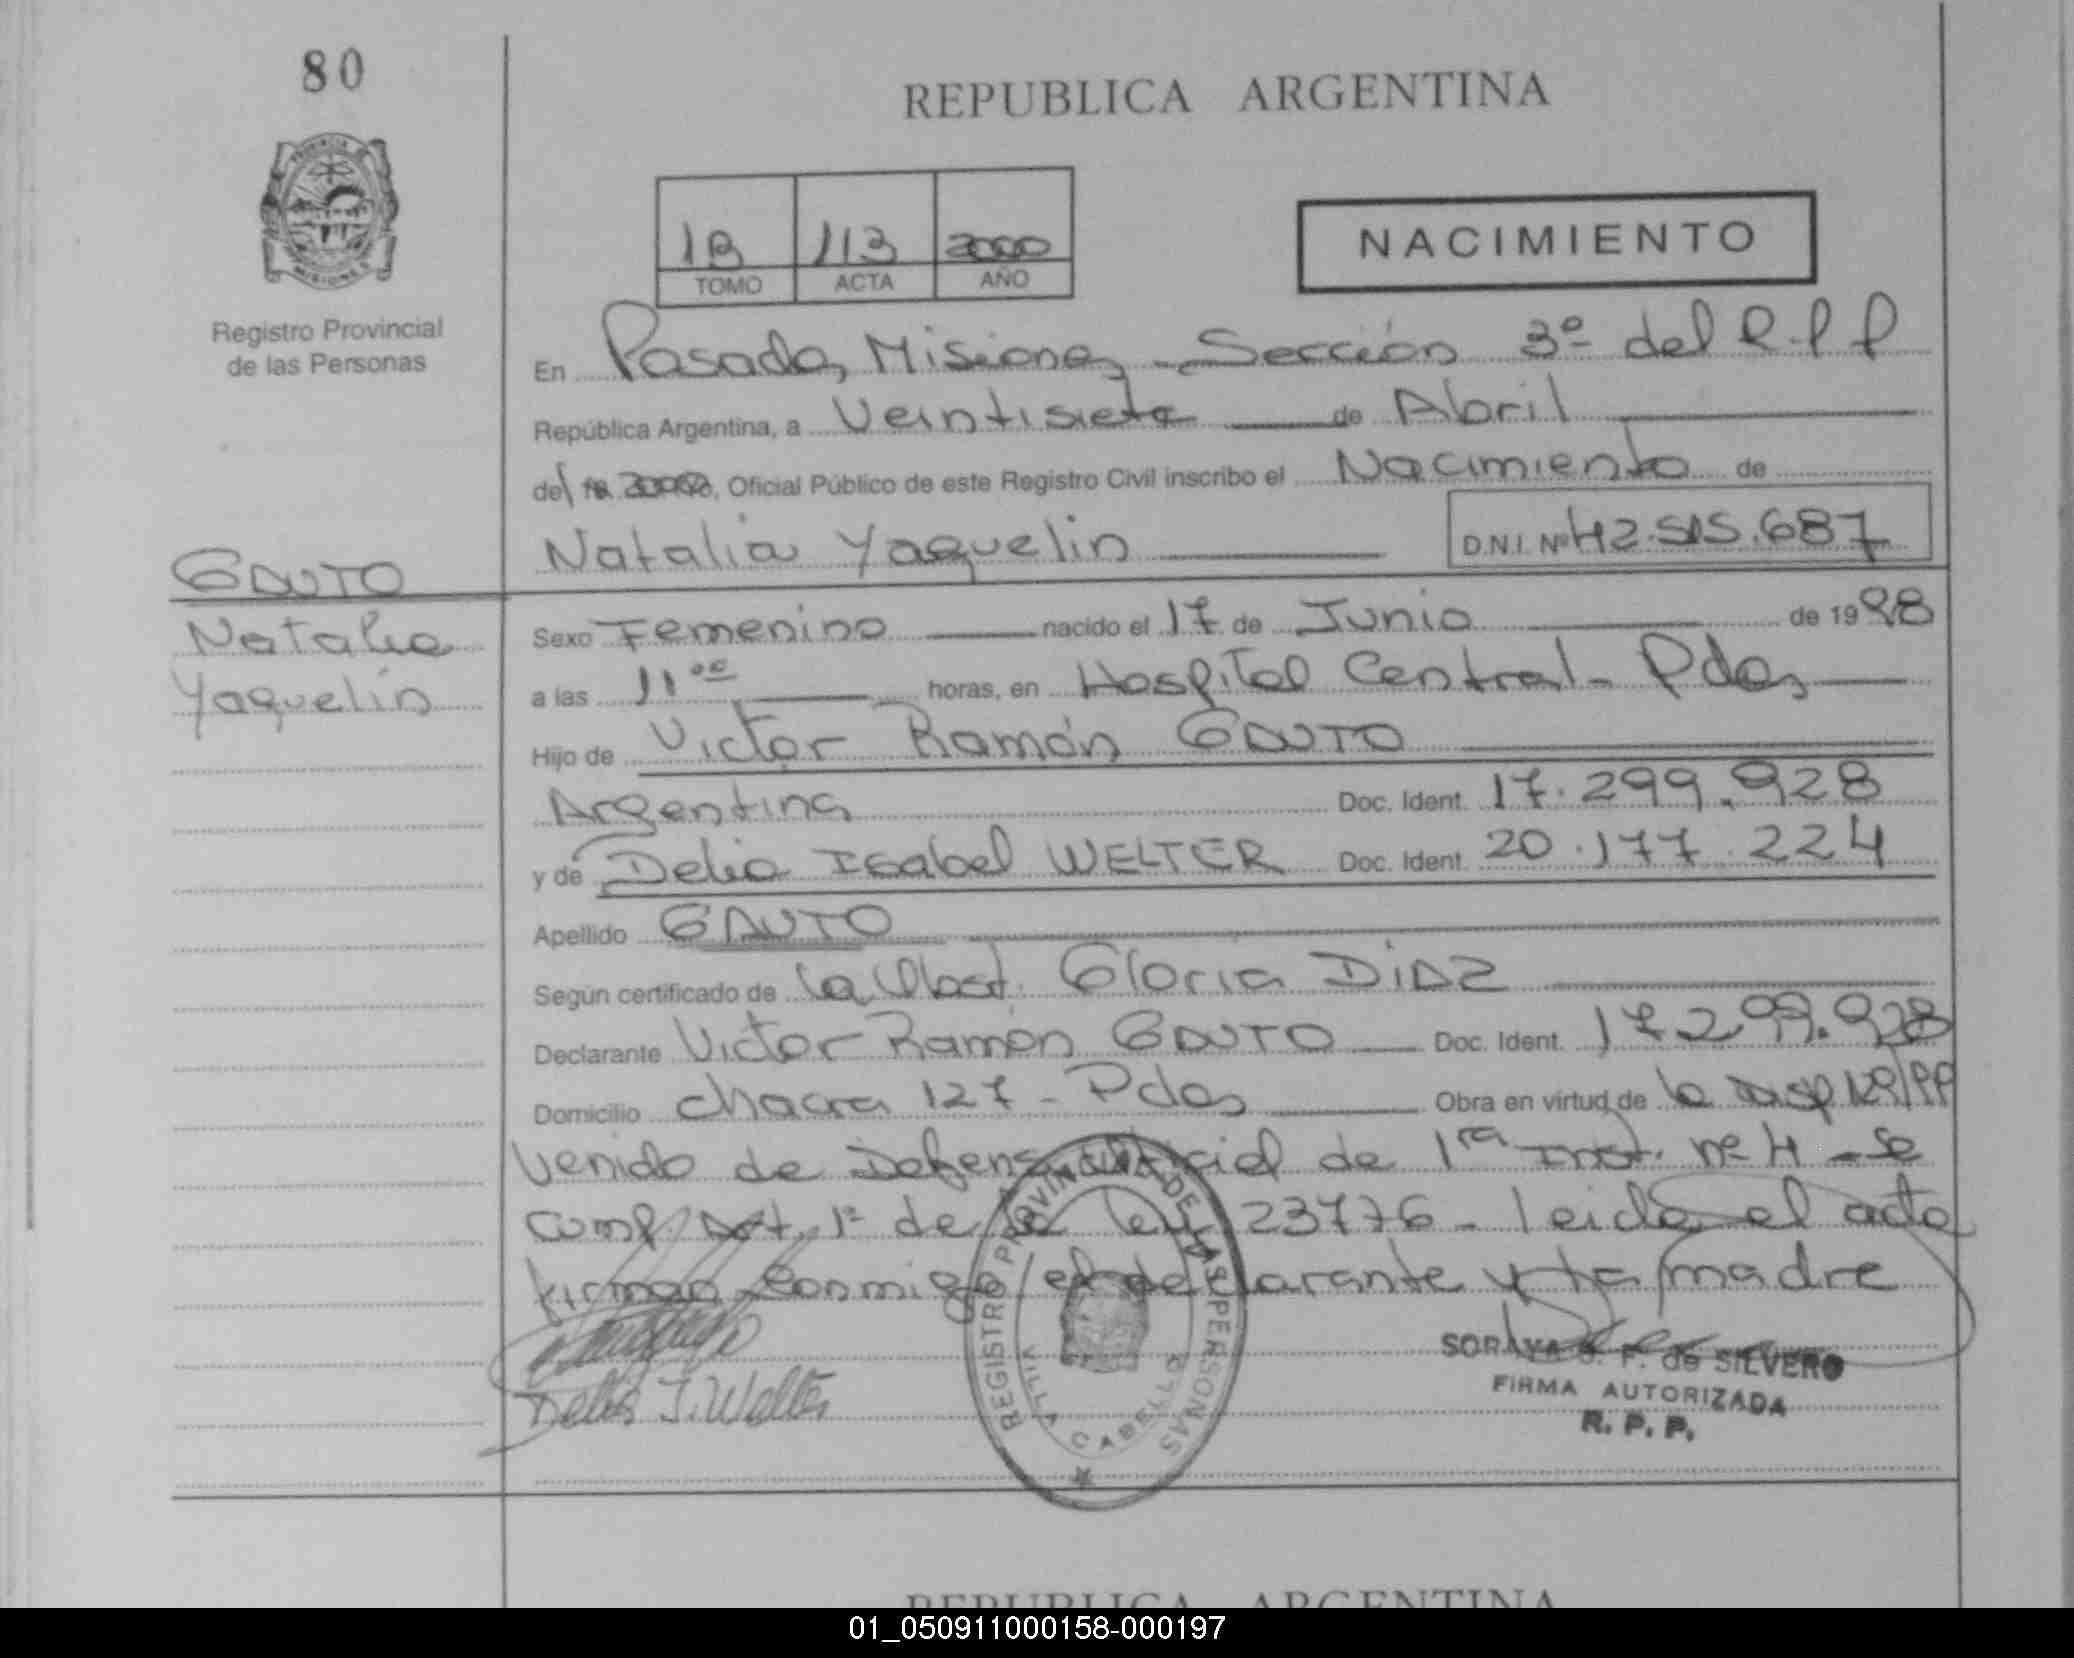 80
REPUBLICA ARGENTINA
PROVINCIA DE
MISIONES
Registro Provincial
de las Personas
1B 113 2000
TOMO ACTA AÑO
NACIMIENTO
En Posadas, Misiones, Sección 3º del R.P.P
República Argentina, a Veintisiete de Abril
del 2000, Oficial Público de este Registro Civil inscribo el Nacimiento de
Natalia Yaquelin D.N.I. Nº 42.515.687
GAUTO
Natalia
Yaquelin
Sexo Femenino nacido el 17 de Junio de 1998
a las 11 horas, en Hospital Central - Pdas
Hijo de Victor Ramón GAUTO
Argentina Doc. Ident. 17.299.928
y de Delia Isabel WELTER Doc. Ident. 20.177.224
Apellido GAUTO
Según certificado de la Obst. Gloria DIAZ
Declarante Victor Ramón GAUTO Doc. Ident. 17.299.928
Domicilio chacra 127 - Pdas Obra en virtud de la Disp
venido de Defens Oficial de 1ra Inst. nº 4 - se
comp Art. 1º de la ley 23776 - leida el acta
firman conmigo el declarante y la madre
Delia I. Welter
REGISTRO PROVINCIAL DE LAS PERSONAS
VILLA CABELLO
SORAYA F. de SILVERO
FIRMA AUTORIZADA
R. P. P.
REPUBLICA ARGENTINA
01_050911000158-000197